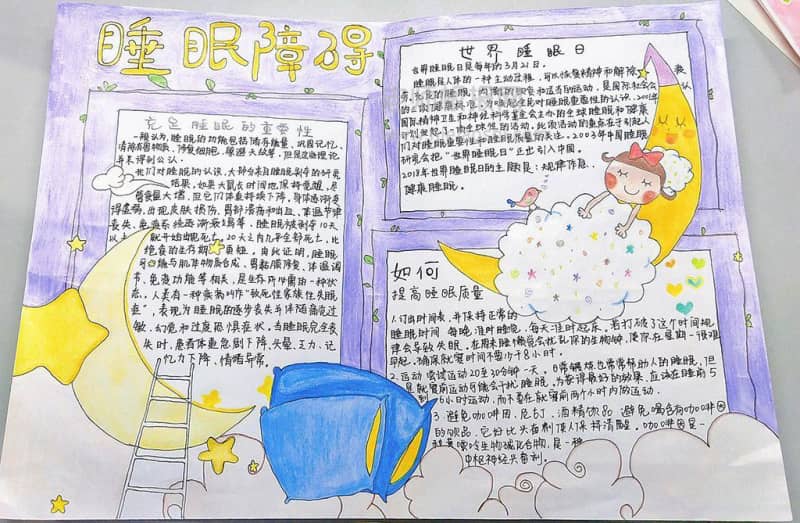 睡眠障碍
充足睡眠的重要性
一般认为,睡眠的功能包括储存能量,巩固记忆,
清除有害物质,修复细胞,躲避天敌等,但是这些理论
并未得到公认。
我们对睡眠的认识,大部分来自睡眠剥夺的研究
结果,如果大鼠长时间地保持觉醒,尽
管食量大增,但它们体重持续下降,身体逐渐变
得虚弱,出现皮肤损伤,胃部溃疡和出血,体温节律
丧失,免疫系统逐渐衰竭等,睡眠被剥夺10天
以上就开始出现死亡,20天之内几乎全部死亡,比
绝食的生存期更短。由此证明,睡眠
可能与肌体物质合成,胃黏膜修复,体温调
节,免疫功能等相关,是生存所必需的一种状
态。人类有一种疾病叫作"致死性家族性失眠
症",表现为睡眠的逐步丧失并伴随痛觉过
敏,幻觉和过度恐惧症状,当睡眠完全丧
失时,患者体重急剧下降,头晕,乏力,记
忆力下降,情绪异常。
世界睡眠日
世界睡眠日是每年的3月21日。
睡眠是人体的一种主动过程,可以恢复精神和解除疲
劳,充足的睡眠,均衡的饮食和适当的运动,是国际社会公认
的三项健康标准。为唤起全民对睡眠重要性的认识,2001年
国际精神卫生和神经科学基金会主办的全球睡眠和健康
计划发起了一项全球性的活动,此项活动的重点在于引起人
们对睡眠重要性和睡眠质量的关注。2003年中国睡眠
研究会把"世界睡眠日"正式引入中国。
2018年世界睡眠日的主题是:规律作息,
健康睡眠。
如何
提高睡眠质量
1.订出时间表,并保持正常的
睡眠时间 每晚准时睡觉,每天准时起床,若打破了这个时间规
律会导致失眠,在周末睡懒觉会扰乱你的生物钟,使你在星期一很难
早起。确保就寝时间不要少于8小时。
2.运动 尝试运动20至30分钟一天。日常锻炼也常常帮助人的睡眠,但
是就寝前运动可能会干扰睡眠。为获得最好的效果,应该在睡前5
到6小时运动,而不要在就寝前两个小时内的运动。
3.避免咖啡因,尼古丁,酒精饮品 避免喝含有咖啡因
的饮品,它好比兴奋剂使人保持清醒。咖啡因是一
种黄嘌呤生物碱化合物,是一种
中枢神经兴奋剂。